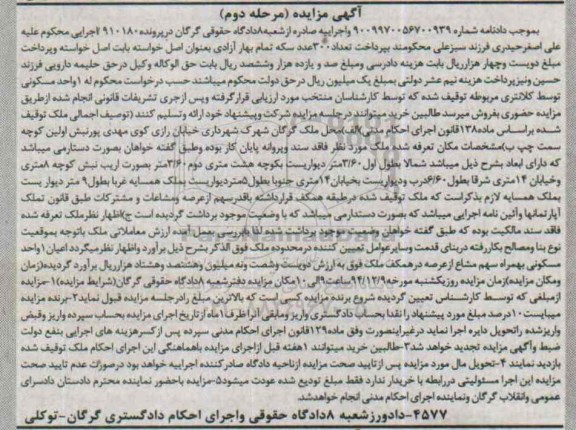 آگهی مزایده (مرحله دوم)
بموجب دادنامه شماره ۹۰۰۹۹۷۰۰۵۶۷۰۰۹۳۹ واجراییه صادره ازشعبه۸دادگاه حقوقی گرگان درپرونده۹۱۰۱۸۰اجرایی محکوم علیه
علی اصغرحیدری فرزند سبزعلی محکومند بپرداخت تعداد۳۰۰عدد سکه تمام بهار آزادی بعنوان اصل خواسته بابت اصل خواسته وپرداخت
مبلغ دویست وچهار هزارریال بابت هزینه دادرسی ومبلغ صد و یازده هزار وششصد ریال بابت حق الوکاله وکیل درحق حلیمه دارویی فرزند
حسین ونیزپرداخت هزینه نیم عشر دولتی بمبلغ یک میلیون ریال درحق دولت محکوم میباشند حسب درخواست محکوم له ۱واحد مسکونی
توسط کلانتری مربوطه توقیف شده که توسط کارشناسان منتخب مورد ارزیابی قرارگرفته وپس ازجری تشریفات قانونی انجام شده ازطریق
مزایده حضوری بفروش میرسد طالبین خرید میتوانند درجلسه مزایده شرکت وپیشنهاد خود ارائه وتسلیم کنند (توصیف اجمالی ملک توقیف
شده براساس ماده۱۳۸قانون اجرای احکام مدنی)الف)محل ملک گرگان شهرک شهرداری خیابان رازی کوی مهدی پورنبش اولین کوچه
سمت چپ ب)مشخصات مکان تعرفه شده ملک مورد نظر فاقد سند وپروانه پایان کار بوده وطبق گفته خواهان بصورت دستدارمی میباشد
که دارای ابعاد بشرح ذیل میباشد شمالا بطول اول ۳/۶۰متر دیواریست بکوچه هشت متری دوم۳/۶۰متر بصورت اریب نبش کوچه ۸متری
وخیابان ۱۴متری شرقا بطول ۶/۶۰درب ودیواریست بخیابان۱۴متری جنوبا بطول۵متردیواریست بملک همسایه غربا بطول۹ متر دیوار یست
بملک همسایه لازم بذکراست که ملک توقیف شده درطبقه همکف قرارداشته باقدرسهم ازعرصه ومشاعات و مشترکات طبق قانون تملک
آپارتمانها وآئین نامه اجرایی میباشد که بصورت دستدارمی میباشد که با وضعیت موجود برداشت گردیده است ج)اظهار نظرملک تعرفه شده
فاقد سند مالکیت بوده که طبق گفته خواهان وضعیت موجود برداشت شده لذا بابررسی بعمل آمده ارزش معاملاتی ملک باتوجه بموقعیت
نوع بنا ومصالح بکاررفته دربنای قدمت وسایرعوامل تعیین کننده درمحدوده ملک فوق الذکر بشرح ذیل برآورد واظهار نظرمیگردد اعیان۱واحد
مسکونی بهمراه سهم مشاع ازعرصه درهمکف ملک فوق به ارزش دویست وشصت ونه میلیون وهشتصد وهشتاد هزارریال برآورد گردیده(زمان
ومکان مزایده)زمان مزایده روزیکشنبه مورخه۱۴/۱۲/۹ساعت۹الی۱۰مکان مزایده دفترشعبه ۸دادگاه حقوقی گرگان(شرایط مزایده)۱-مزایده
ازمبلغی که توسط کارشناس تعیین گردیده شروع برنده مزایده کسی است که بالاترین مبلغ رادرجلسه مزایده قبول نماید۲-برنده مزایده
میبایست۱۰درصد مبلغ مورد پیشنهاد را نقدا بحساب دادگستری واریز ومابقی آنراظرف۱ماه ازتاریخ اجرای مزایده بحساب سپرده واریز وفیش
واریزشده راتحویل دایره اجرا نماید درغیراینصورت وفق ماده۱۲۹قانون اجرای احکام مدنی سپرده پس ازکسرهزینه های اجرایی بنفع دولت
ضبط وآگهی مزایده تجدید خواهد شد۳-طالبین خرید میتوانند ۱هفته قبل ازاجرای مزایده باهماهنگی این اجرای احکام ملک توقیف شده
بازدید نمایند ۴-تحویل مال مورد مزایده پس ازتایید صحت مزایده ازناحیه دادگاه صادرکننده اجراییه خواهد بود درصورت عدم تایید صحت
مزایده این اجرا مسئولیتی دررابطه باخریدار ندارد فقط مبلغ تودیع شده عودت میشود۵-مزایده باحضور نماینده محترم دادستان دادسرای
عمومی وانقلاب گرگان ونماینده اجرای احکام مدنی انجام خواهدشد.
۴۵۷۷-دادورزشعبه ۸دادگاه حقوقی واجرای احکام دادگستری گرگان-توکلی